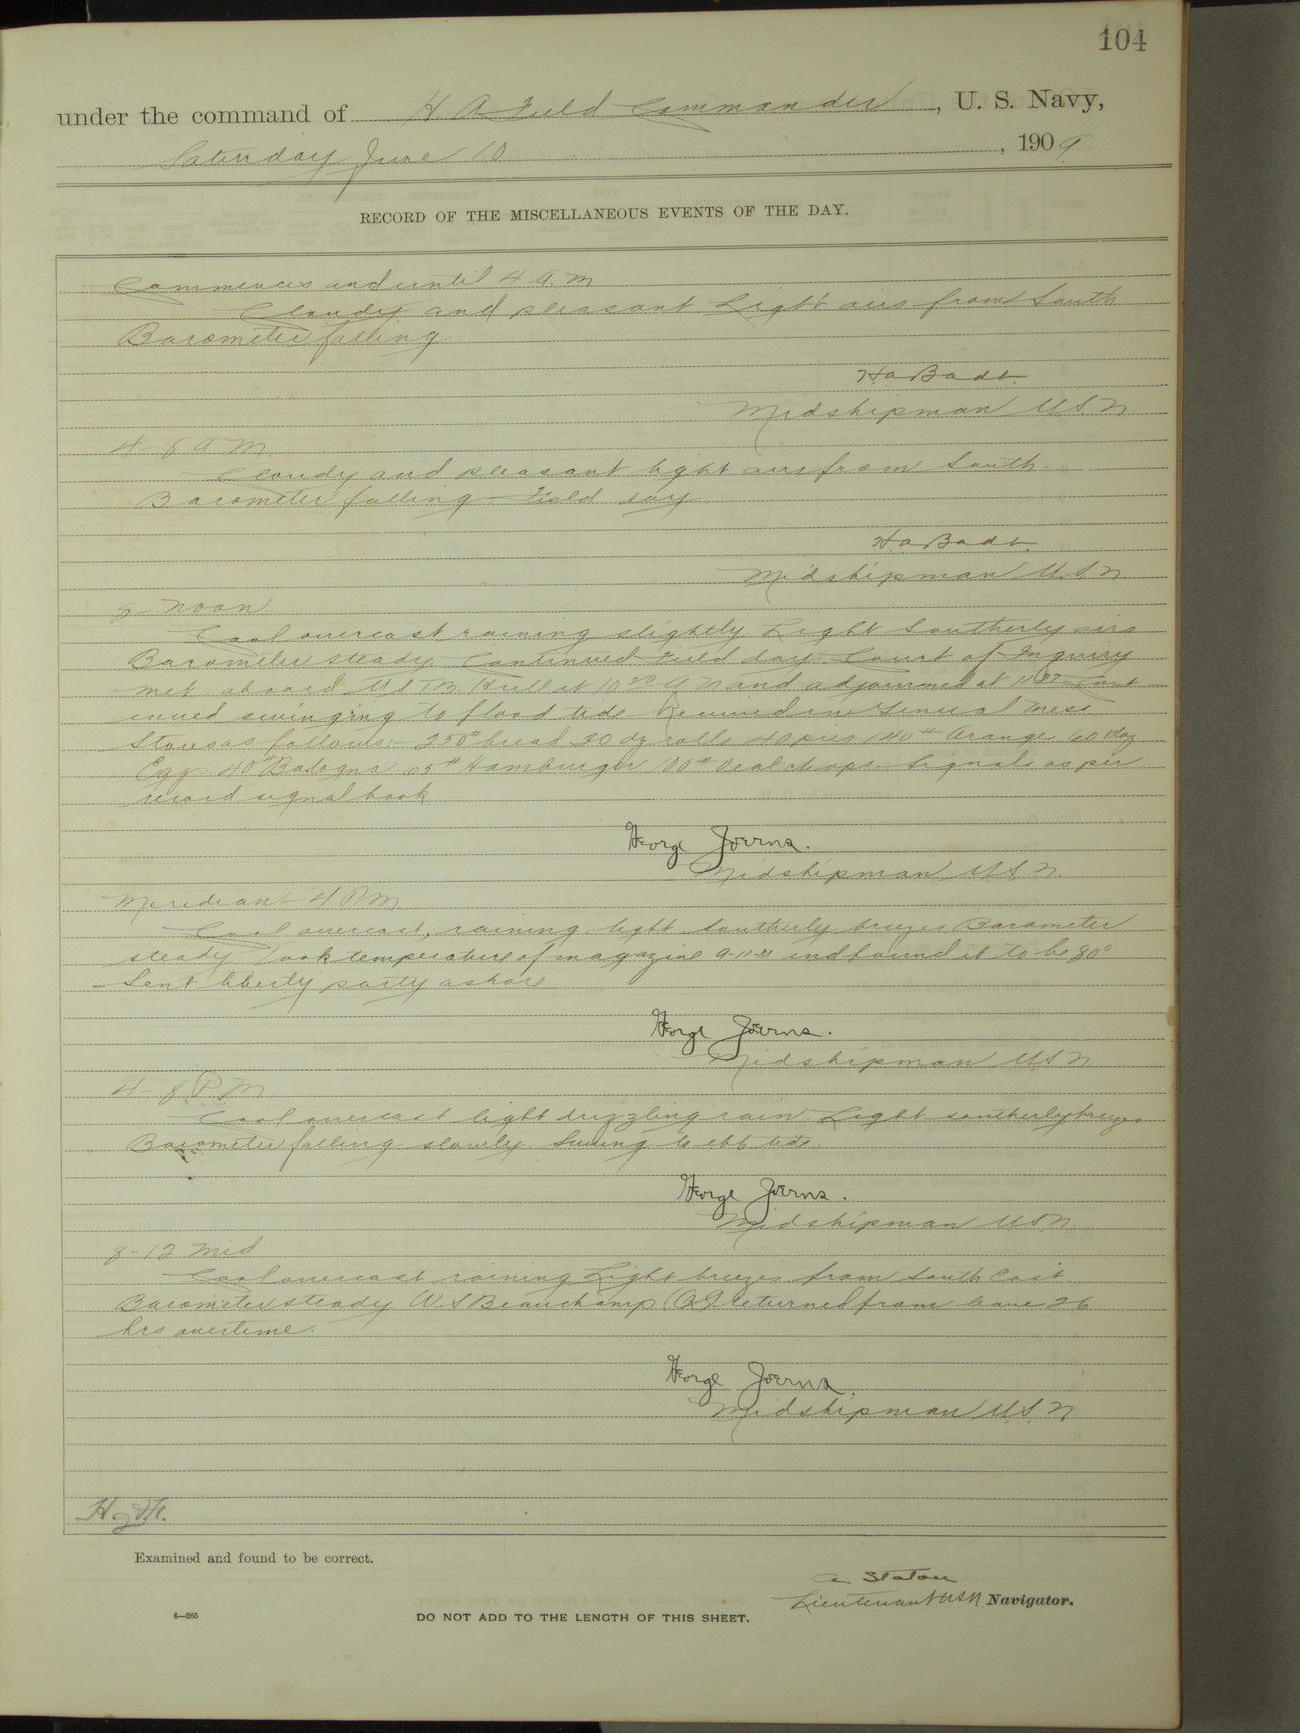 104
under the command of H. A. Field Commander, U. S. Navy,
Saturday June 10, 1909
RECORD OF THE MISCELLANEOUS EVENTS OF THE DAY.
Commences and until 4 A.M
Cloudy and pleasant Light airs from South
Barometer falling
H a Badt.
Midshipman U.S.N
4-8 A M.
Cloudy and pleasant light airs from South.
Barometer falling Field day
H a Badt.
Midshipman U.S.N.
8-Noon
Cool overcast raining slightly Light Southerly airs
Barometer steady Continued Field day. Court of Inquiry
met aboard Hull at 10 A M and adjourned at Cont
inued swinging to flood tide Received in General Mess
Stores as follows:- 250# bread 30 dz rolls 40 pies 140# Orange 60 doz
Eggs 40# Bologna 65# Hamburger 100# Veal chops. Signals as per
record signal book
George Joerns.
Midshipman U S N.
Meridian-4 P M
Cool overcast, raining light southerly breezes Barometer
steady Took temperature of magazine and found it to be 80°
Sent liberty party ashore
George Joerns.
Midshipman U.S N
4-8 P.M
Cool overcast light drizzling rain. Light southerly breezes
Barometer falling slowly. Swung to ebb tide.
George Joerns.
Midshipman U.S.N.
8-12 Mid
Cool overcast raining Light breezes from South East
Barometer steady W. S Beauchamp returned from leave 26
hrs overtime.
George Joerns.
Midshipman U.S. N
Examined and found to be correct.
A Staton
Lieutenant USN Navigator.
4—265
DO NOT ADD TO THE LENGTH OF THIS SHEET.